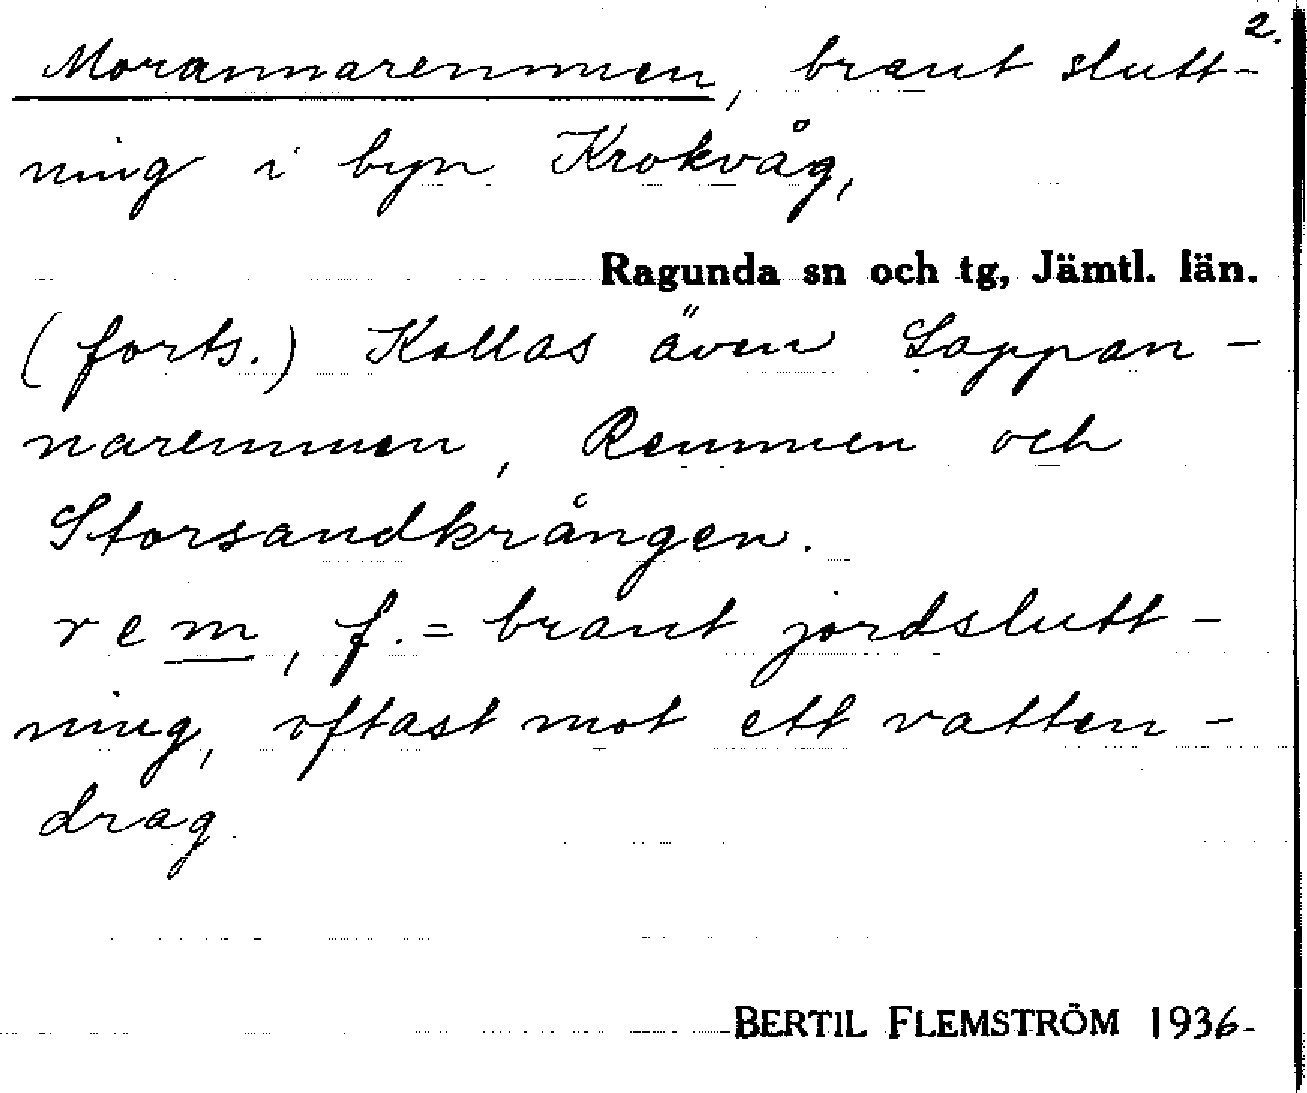 2.
Morannaremmen, brant slutt-
ning i byn Krokvåg,
Ragunda sn och tg, Jämtl. län.
(forts.) Kallas även Lappan-
naremmen, Remmen och
Storsandkrången.
rem, f. = brant jordslutt-
ning, oftast mot ett vatten-
drag.
BERTIL FLEMSTRÖM 1936-